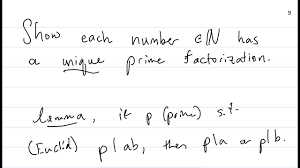 9
Show each number ∈ ℕ has
a unique prime factorization.
Lemma, if p (prime) s.t.
(Euclid) p|ab, then p|a or p|b.